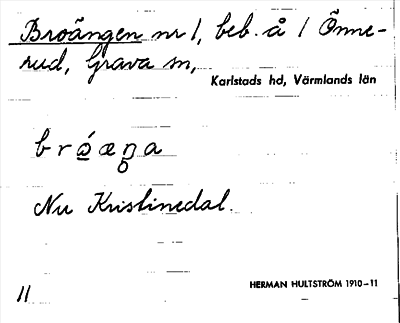 Broängen nr 1, beb. å 1 Önne-
rud, Grava sn,
Karlstads hd, Värmlands län
bróæŋa
Nu Kristinedal.
11
HERMAN HULTSTRÖM 1910-11